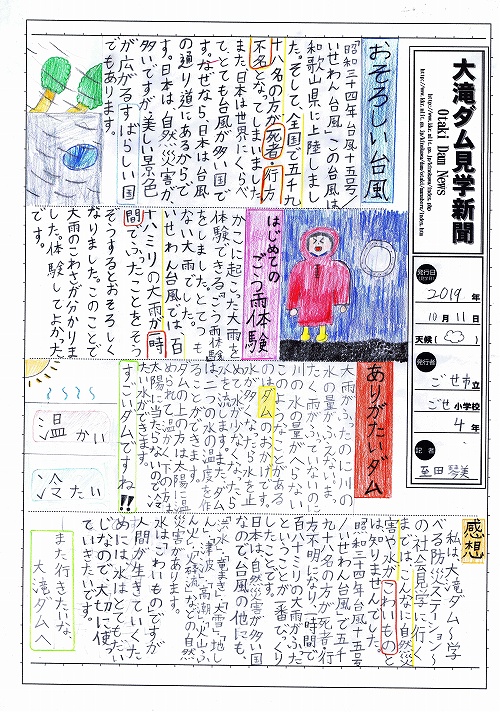 大滝ダム見学新聞
Otaki Dam News
発行日
2019年
10月11日
天候( )
発行者
ごせ市立
ごせ小学校
4年
記者
おそろしい台風
「昭和三十四年台風十五号/
いせわん台風」この台風は
和歌山県に上陸しまし
た。そして、全国で五千九
十八名の方が死者・行方
不名となってしまいました。
また日本は世界にくらべ
て、とても台風が多い国で
す。なぜなら、日本は台風
の通り道にあるからで
す。日本は、自然災害が
多いですが、美しい景色
が広がるすばらしい国
でもあります。
はじめての
ごう雨体験
かこに起こった大雨を
体験できる「ごう雨体験」
をしました。とてつも
ない大雨でした。
いせわん台風では、百
十八ミリの大雨が一時
間でふったことをそう
ぞうするとおそろしく
なりました。このことで
大雨のこわさが分かりま
した。体験してよかった
です。
ありがたいダム
大雨がふったのに川の
水の量がふえない。まっ
たく雨がふっていないのに
川の水の量がへらない。
このようなことがある
のはダムのおかげです。
水が多くなったら水を止
めて水が少なくなったら
水を流します。また、ダム
は二つの水の温度を作
ることができます。
ダムの上の方は太陽に温
められて温かい下の方は
太陽に当たらないので冷
たい水ができます。
すごいダムですね!!
温かい
冷たい
感想
私は、大滝ダム〜学
べる防災ステーション〜
の社会見学に行く
までは、こんなに自然災
害や水がこわいものと
は知りませんでした。
昭和三十四年台風十五号
/いせわん台風」で五千
九十八名の方が死者・行
方不明になり、一時間で
百十八ミリの大雨がふった
ということが一番びっくり
したことです。
日本は、自然災害が多い国
なので台風の他にも、
「こう水」「竜まき」「大雪」「地し
ん」「津波」「高潮」「火山ふ
ん火」「火さい流」などの自然
災害があります。
水は「こわいもの」ですが
人間が生きていくた
めには水はとてもだい
じなので、大切に使っ
ていきたいです。
また行きたいな、
大滝ダムへ。